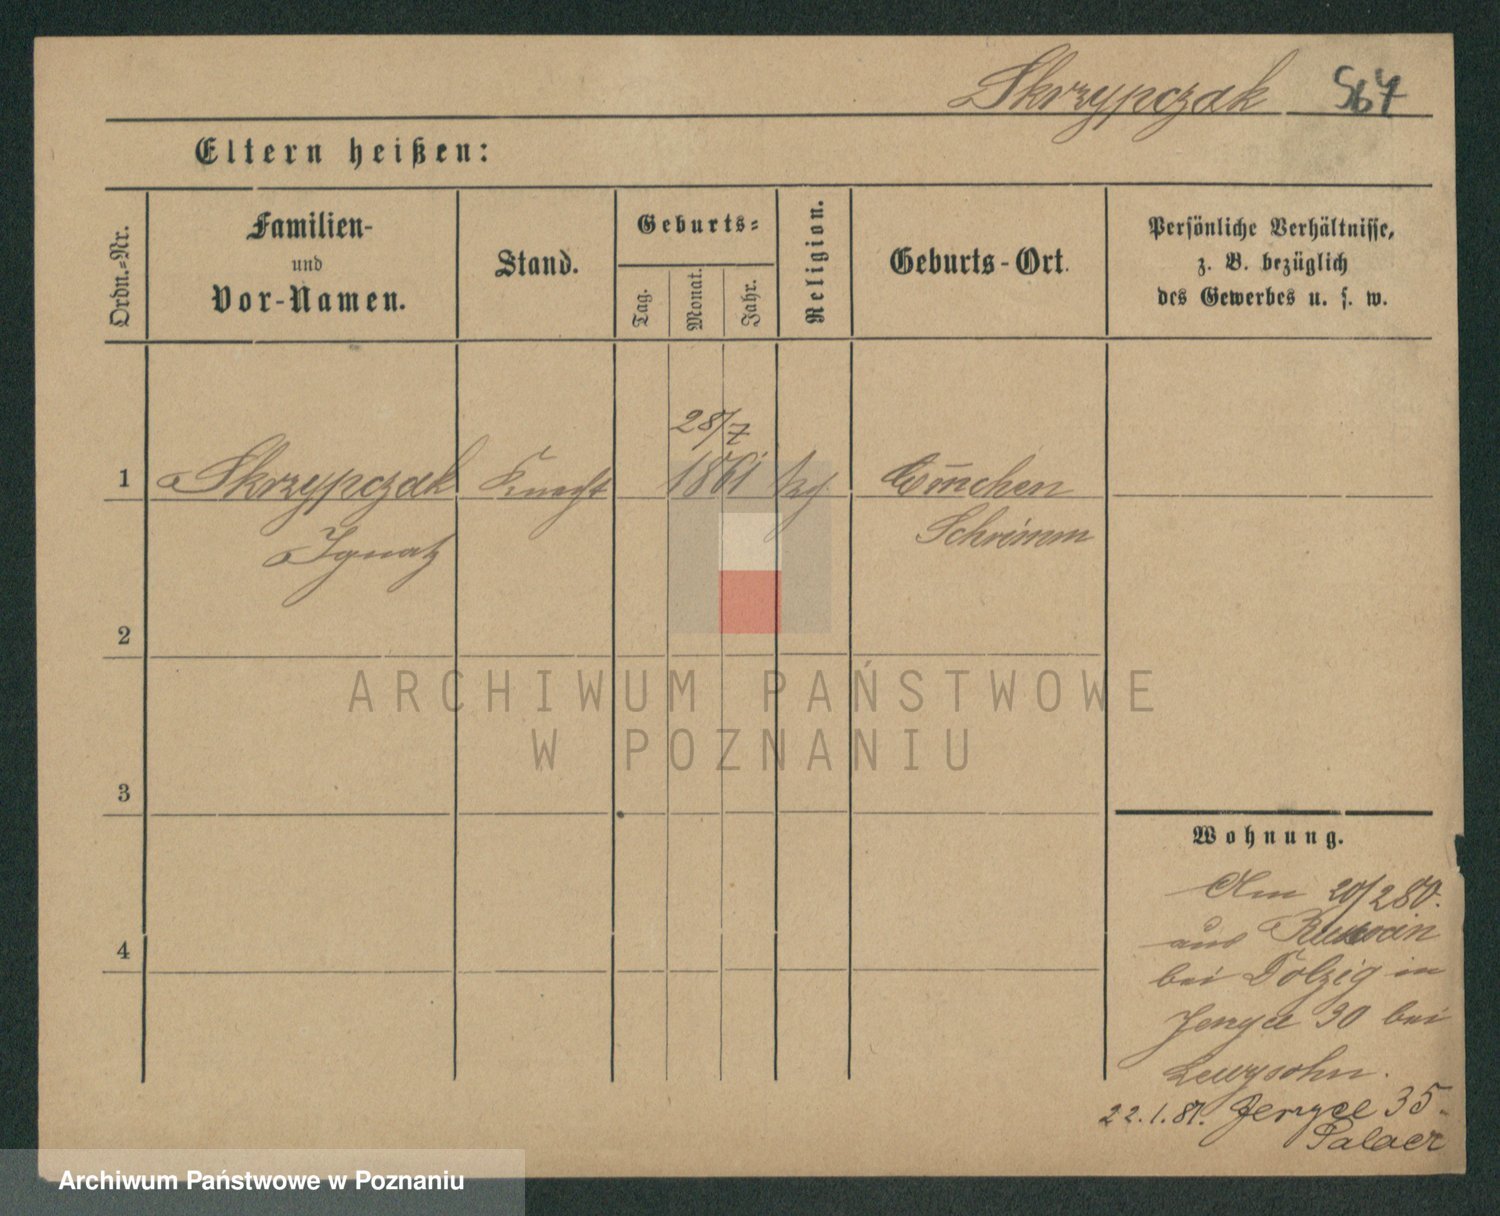 Skrzypczak 567
Eltern heißen:
Ordn.-Nr.
Familien-
und
Vor-Namen.
Stand.
Geburts-
Tag.
Monat.
Jahr.
Religion.
Geburts-Ort.
Persönliche Verhältnisse,
z. B. bezüglich
des Gewerbes u. s. w.
28/7
1 Skrzypczak Knecht 1861
Ignatz Schrimm
2
ARCHIWUM PAŃSTWOWE
W POZNANIU
3
Wohnung.
Am 20/2 80.
4
aus
bei Dolzig in
Jerzyce 30 bei
Lewysohn.
22.1.81. Jerzyce 35.
Palacz
Archiwum Państwowe w Poznaniu